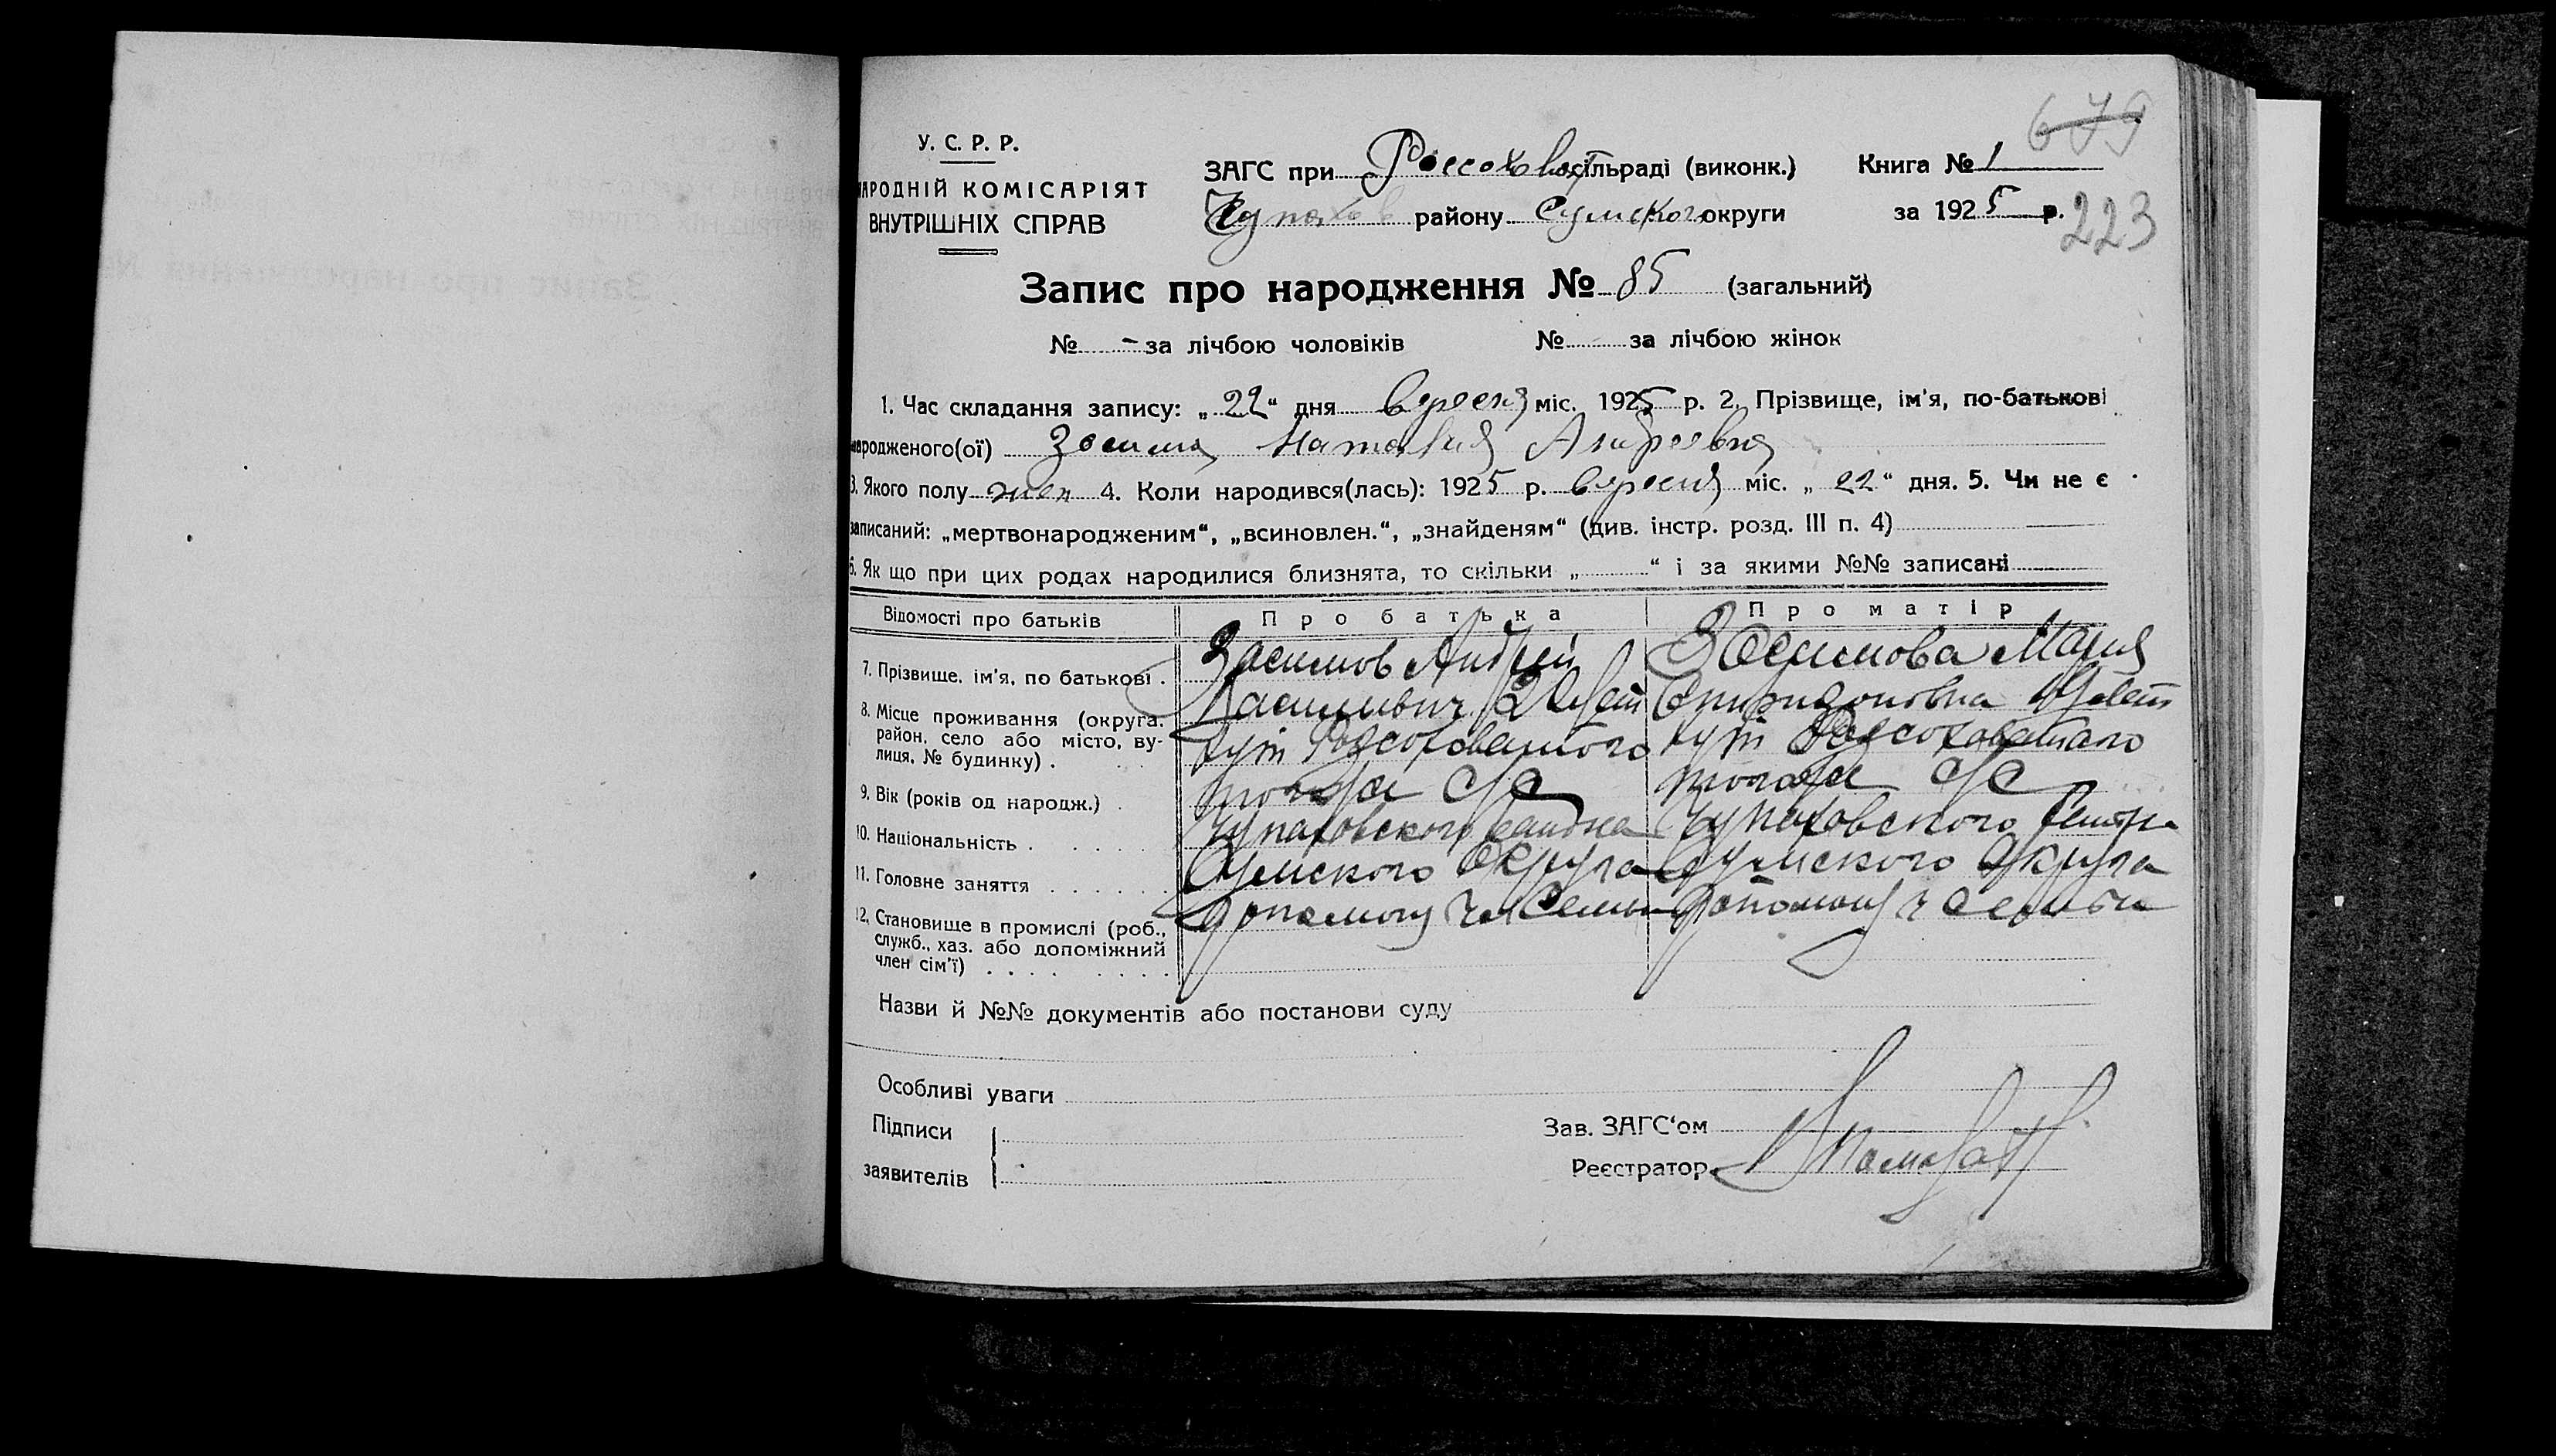 679
У. С. Р. Р.
НАРОДНІЙ КОМІСАРІЯТ
ВНУТРІШНІХ СПРАВ
ЗАГС при Россоховат сільраді (виконк.) Книга № 1
Чупахов району Сумского округи за 1925 р. 223
Запис про народження № 85 (загальний)
№ - за лічбою чоловіків № за лічбою жінок
1. Час складання запису: „22“ дня вересня міс. 1925 р. 2. Прізвище, ім'я, по-батькові
народженого(ої) Зосима Наталия Андреевна
3. Якого полу жен 4. Коли народився(лась): 1925 р. вересня міс. „22“ дня. 5. Чи не є
записаний: „мертвонародженим“, „всиновлен.“, „знайденям“ (див. інстр. розд. III п. 4)
6. Як що при цих родах народилися близнята, то скільки „ “ і за якими №№ записані
Відомості про батьків Про батька Про матір
7. Прізвище, ім'я, по батькові . Засимов Андрей Зосимова Мария
8. Місце проживання (округа, район, село або місто, вулиця, № будинку) . Василевич лет Спиридоновна лет
хут Розсоховатого хут Розсоховатаго
9. Вік (років од народж.) . тогоже С/С тогоже С/С
10. Національність . . . . . Чупаховского района Чупаховского
11. Головне заняття . . . . . . Сумского Округа Сумского Округа
12. Становище в промислі (роб., служб., хаз. або допоміжний член сім'ї) . . . . . . . .
Назви й №№ документів або постанови суду
Особливі уваги
Підписи
заявителів
Зав. ЗАГС'ом
Реєстратор